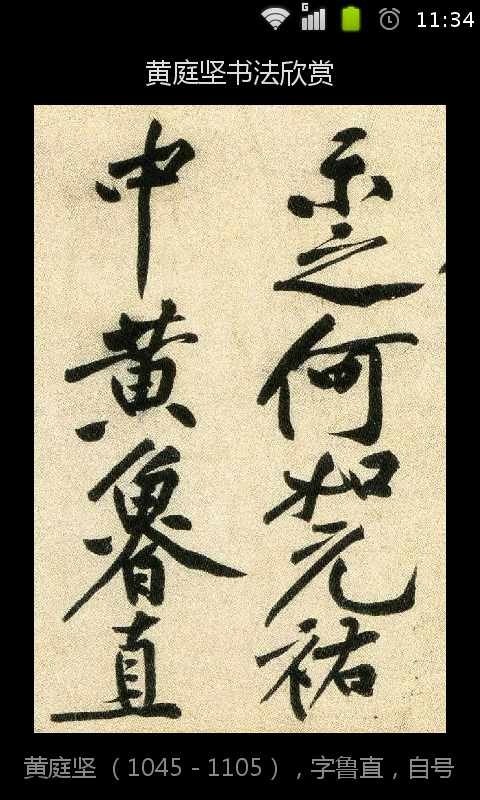 11:34
黄庭坚书法欣赏
示之何如元祐
中黄鲁直
黄庭坚 （1045－1105），字鲁直，自号